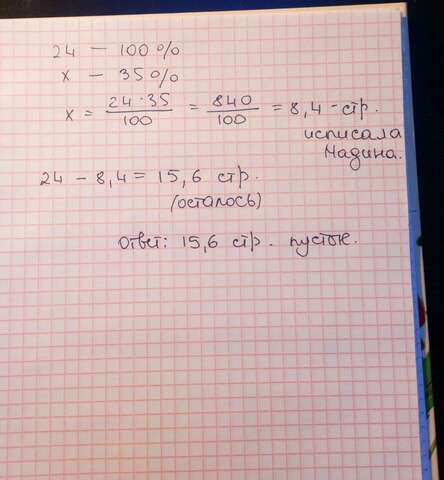 24 — 100%
x — 35%
x = 24·35/100 = 840/100 = 8,4 - стр.
исписала
Мадина.
24 - 8,4 = 15,6 стр.
(осталось)
Ответ: 15,6 стр. пустые.